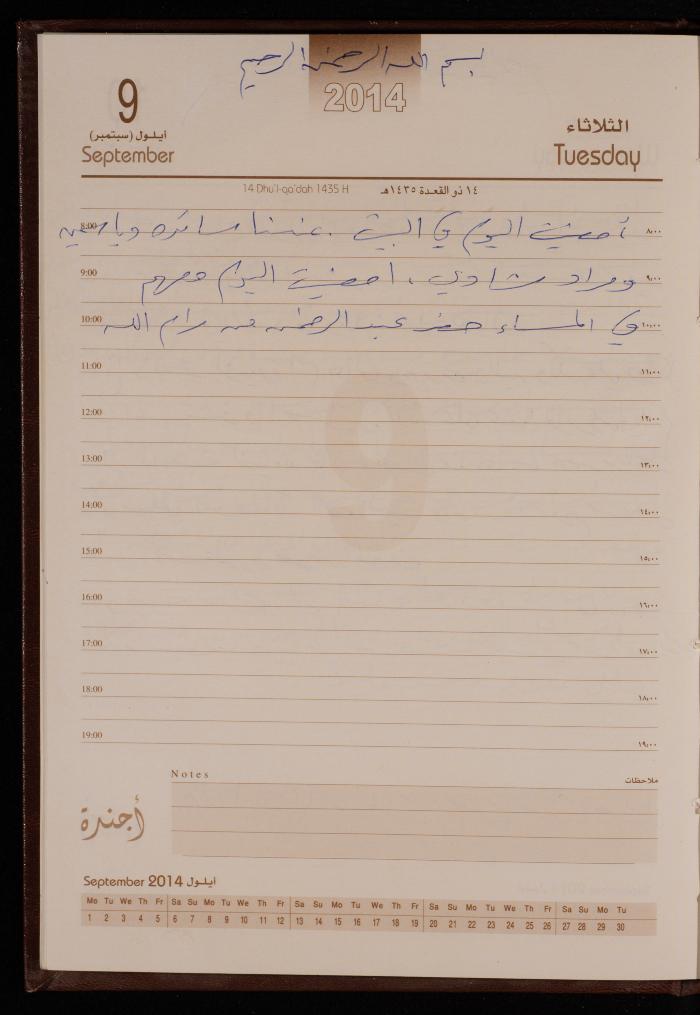 بسم الله الرحمن الرحيم
2014
9
أيلول (سبتمبر)
September
الثلاثاء
Tuesday
14 Dhu'l-qa'dah 1435 H
١٤ ذو القعدة ١٤٣٥هـ
8:00 أمضيت اليوم في البيت . عندنا سائده وياسمين ٨:٠٠
9:00 ومراد شادي . امضيت اليوم معهم ٩:٠٠
10:00 في المساء حضر عبد الرحمن من رام الله ١٠:٠٠
11:00 ١١:٠٠
12:00 ١٢:٠٠
13:00 ١٣:٠٠
14:00 ١٤:٠٠
15:00 ١٥:٠٠
16:00 ١٦:٠٠
17:00 ١٧:٠٠
18:00 ١٨:٠٠
19:00 ١٩:٠٠
Notes ملاحظات
أجندة
September 2014 أيلول
Mo Tu We Th Fr Sa Su Mo Tu We Th Fr Sa Su Mo Tu We Th Fr Sa Su Mo Tu We Th Fr Sa Su Mo Tu
1 2 3 4 5 6 7 8 9 10 11 12 13 14 15 16 17 18 19 20 21 22 23 24 25 26 27 28 29 30